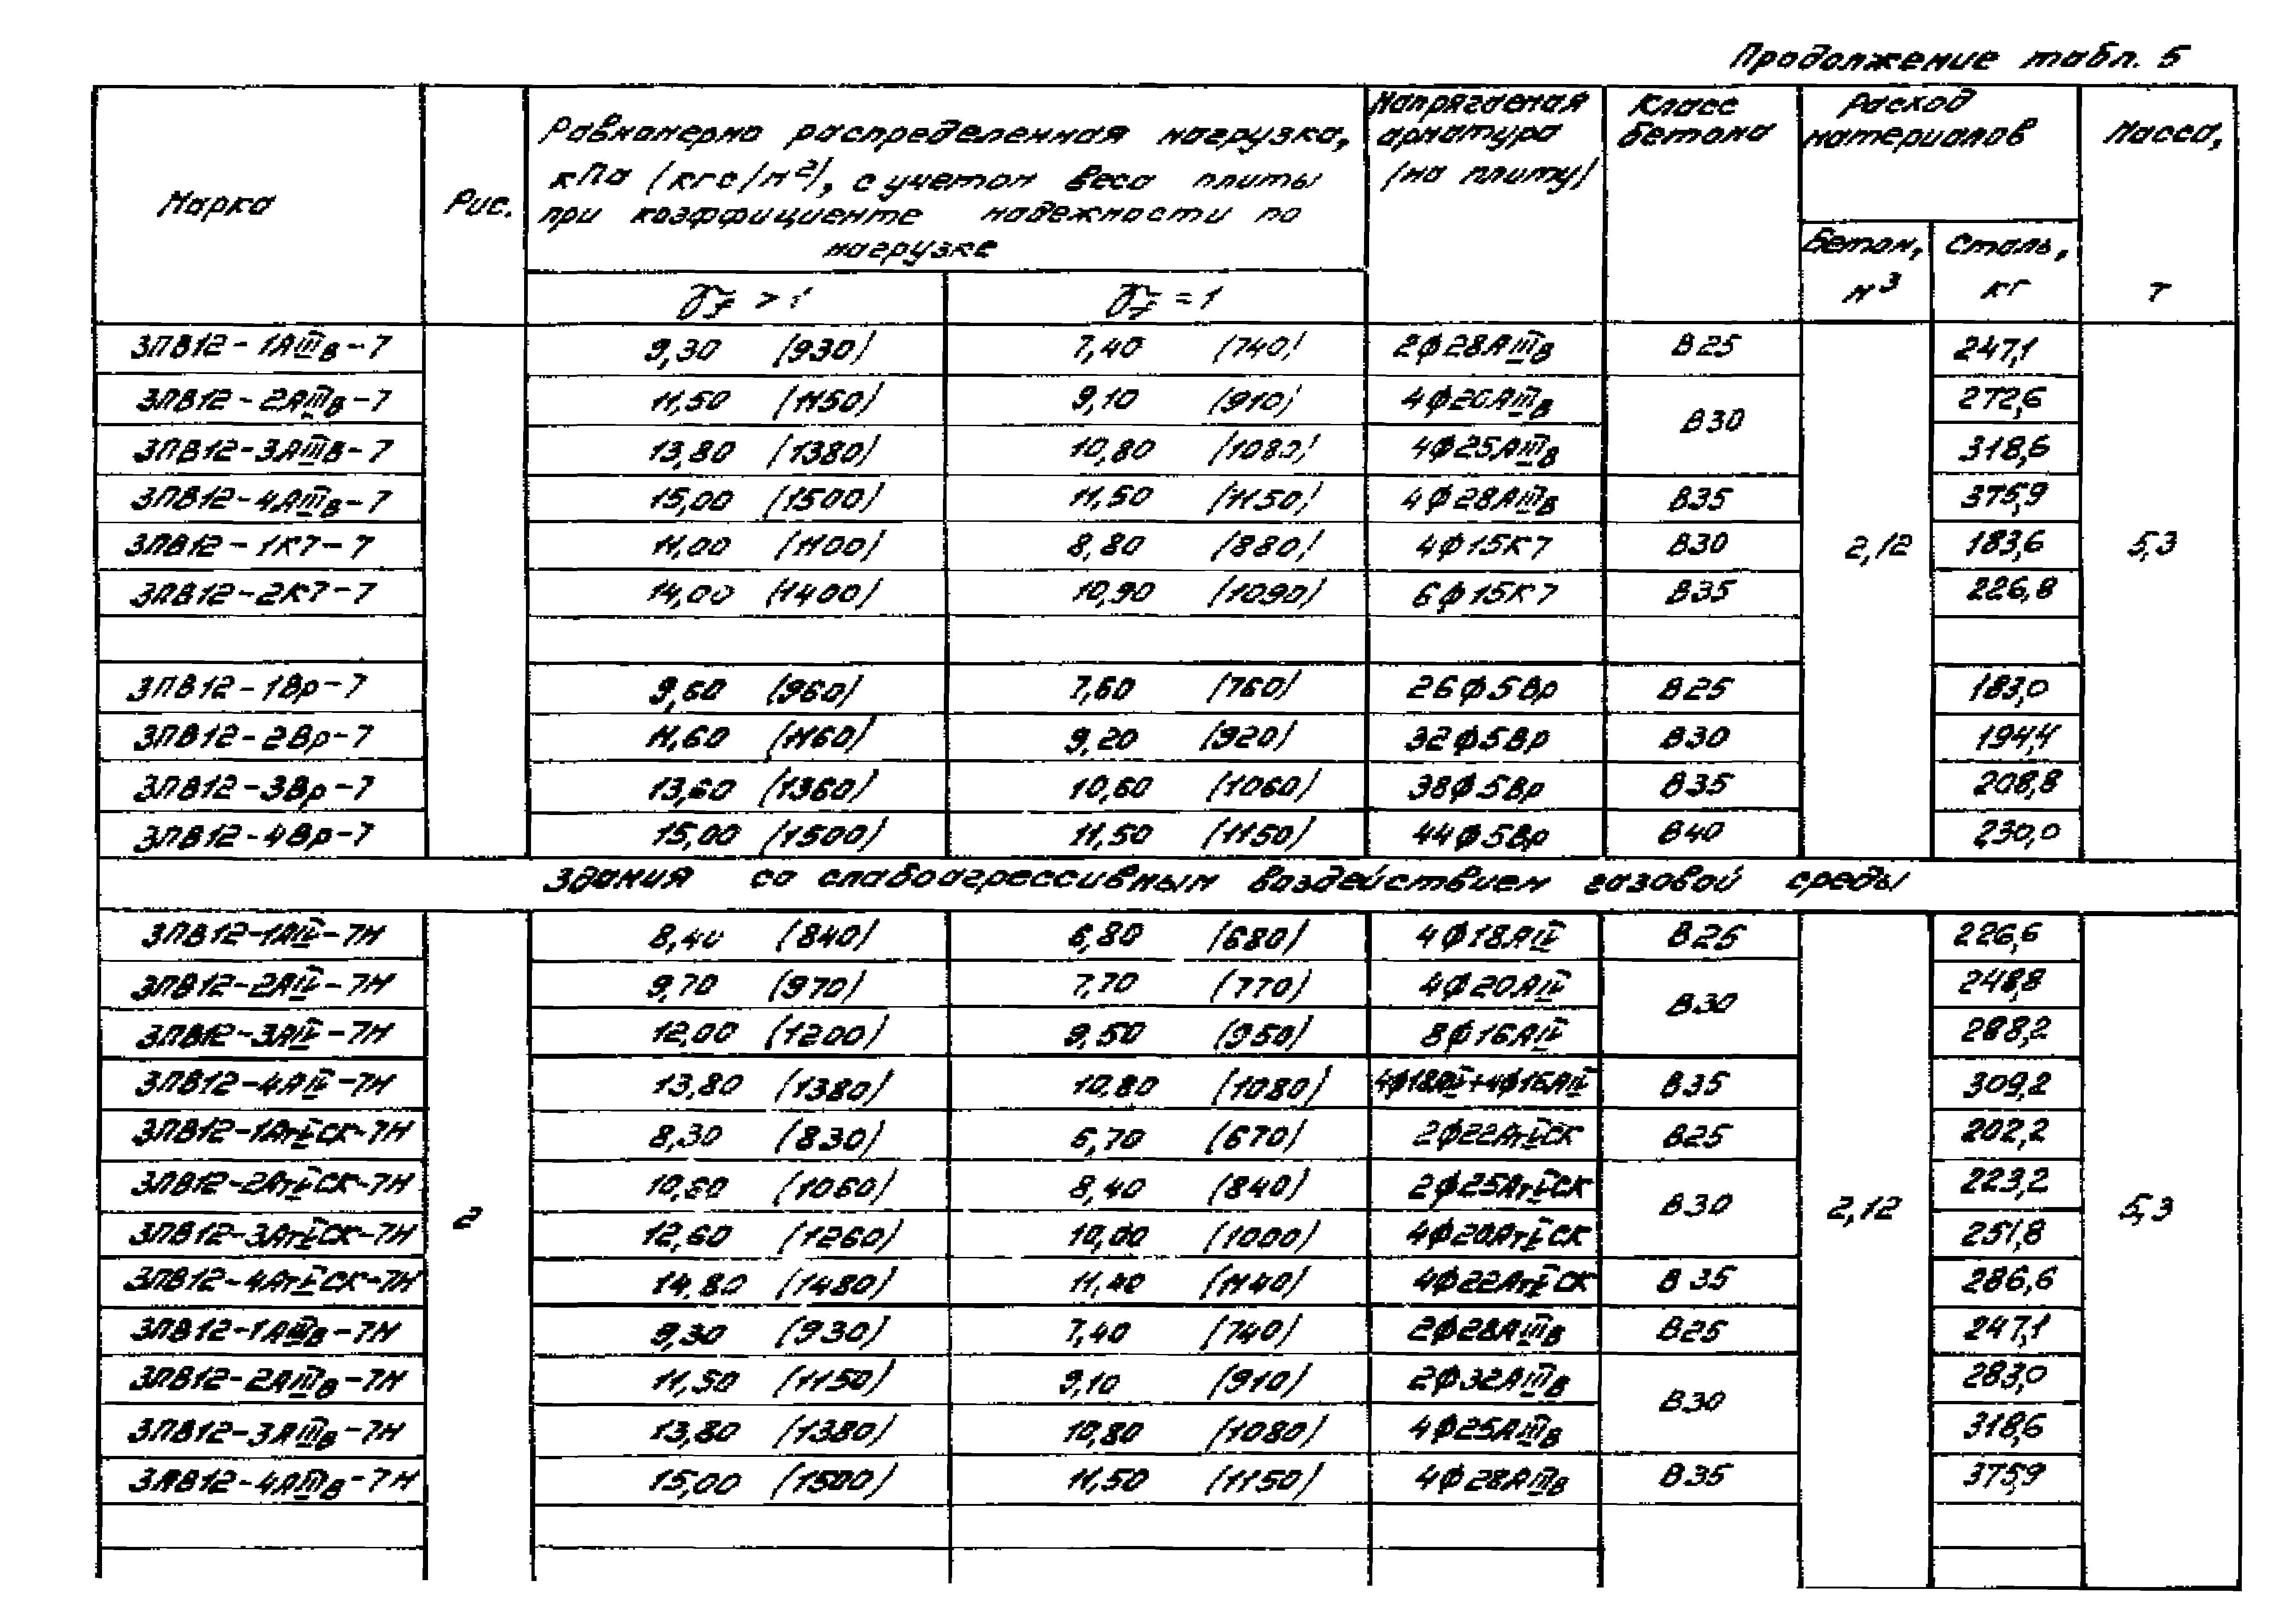 Продолжение табл. 5
Марка Рис. Равномерно распределенная нагрузка, кПа (кгс/м²), с учетом веса плиты при коэффициенте надежности по нагрузке Напрягаемая арматура (на плиту) Класс бетона Расход материалов Масса, т
γf > 1 γf = 1 Бетон, м³ Сталь, кг
3ПВ12-1АIIIв-7 9,30 (930) 7,40 (740) 2ф28АIIIв В25 247,1
3ПВ12-2АIIIв-7 11,50 (1150) 9,10 (910) 4ф20АIIIв В30 272,6
3ПВ12-3АIIIв-7 13,80 (1380) 10,80 (1080) 4ф25АIIIв 318,6
3ПВ12-4АIIIв-7 15,00 (1500) 11,50 (1150) 4ф28АIIIв В35 375,9
3ПВ12-1К7-7 11,00 (1100) 8,80 (880) 4ф15К7 В30 2,12 183,6 5,3
3ПВ12-2К7-7 14,00 (1400) 10,90 (1090) 6ф15К7 В35 226,8
3ПВ12-1Вр-7 9,60 (960) 7,60 (760) 26ф5Вр В25 183,0
3ПВ12-2Вр-7 11,60 (1160) 9,20 (920) 32ф5Вр В30 194,4
3ПВ12-3Вр-7 13,60 (1360) 10,60 (1060) 38ф5Вр В35 208,8
3ПВ12-4Вр-7 15,00 (1500) 11,50 (1150) 44ф5Вр В40 230,0
Здания со слабоагрессивным воздействием газовой среды
3ПВ12-1АIV-7Н 8,40 (840) 6,80 (680) 4ф18АIV В25 226,6
3ПВ12-2АIV-7Н 9,70 (970) 7,70 (770) 4ф20АIV В30 248,8
3ПВ12-3АIV-7Н 12,00 (1200) 9,50 (950) 8ф16АIV 288,2
3ПВ12-4АIV-7Н 13,80 (1380) 10,80 (1080) 4ф18АIV+4ф16АIV В35 309,2
3ПВ12-1АтVСК-7Н 8,30 (830) 6,70 (670) 2ф22АтVСК В25 202,2
3ПВ12-2АтVСК-7Н 10,60 (1060) 8,40 (840) 2ф25АтVСК В30 223,2
3ПВ12-3АтVСК-7Н 2 12,60 (1260) 10,00 (1000) 4ф20АтVСК 2,12 251,8 5,3
3ПВ12-4АтVСК-7Н 14,80 (1480) 11,40 (1140) 4ф22АтVСК В35 286,6
3ПВ12-1АIIIв-7Н 9,30 (930) 7,40 (740) 2ф28АIIIв В25 247,1
3ПВ12-2АIIIв-7Н 11,50 (1150) 9,10 (910) 2ф32АIIIв В30 283,0
3ПВ12-3АIIIв-7Н 13,80 (1380) 10,80 (1080) 4ф25АIIIв 318,6
3ПВ12-4АIIIв-7Н 15,00 (1500) 11,50 (1150) 4ф28АIIIв В35 375,9